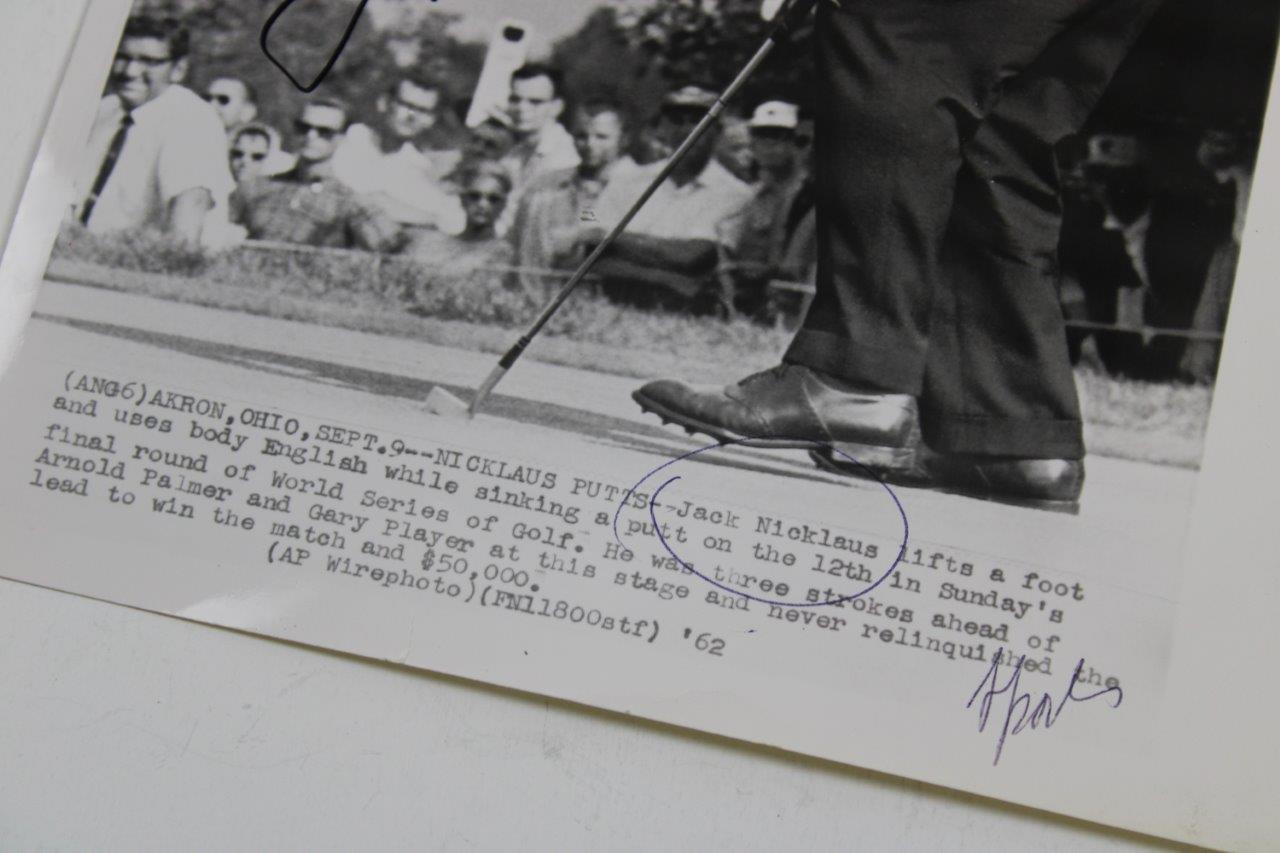 (ANG6)AKRON,OHIO,SEPT.9--NICKLAUS PUTTS--Jack Nicklaus lifts a foot
and uses body English while sinking a putt on the 12th in Sunday's
final round of World Series of Golf. He was three strokes ahead of
Arnold Palmer and Gary Player at this stage and never relinquished the
lead to win the match and $50,000.
(AP Wirephoto)(FN11800stf) '62
Sports